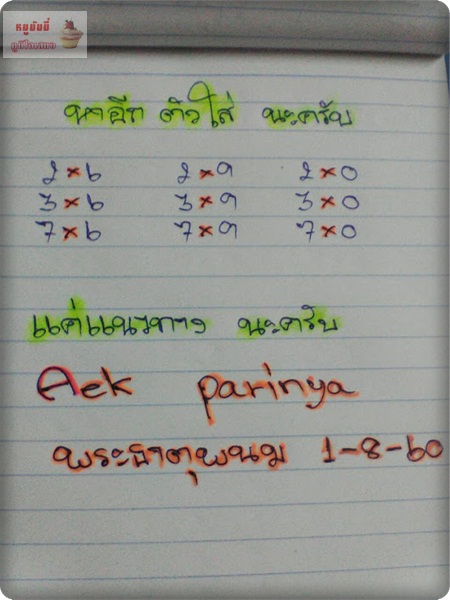 หมูบันบี้
ดูดีโอเลขเอง
หาอีก ตัวใส่ นะครับ
2×6 2×9 2×0
3×6 3×9 3×0
7×6 7×9 7×0
แค่แนวทาง นะครับ
Aek parinya
พระธาตุพนม 1-8-60